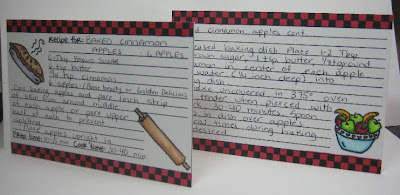 Recipe for: BAKED CINNAMON
APPLES 6 APPLES
6 Tbsp Brown Sugar
6 tsp butter
3/4 tsp. cinnamon
6 apples (Rome beauty or Golden Delicious)
Core baking apples and pare 1 inch strip
of skin from around middle
of apples or pare upper
half of each to prevent
splitting
Place apples upright in
Prep time: 10-15 min Cook time: 30-40 min
d cinnamon apples cont...
eased baking dish. Place 1-2 Tbsp
own sugar, 1 tsp butter, 1/8 ground
mon in center of each apple
water (1/4 inch deep) into
g dish.
ake uncovered in 375° oven
tender when pierced with
30-40 minutes. Spoon
in dish over apples
eral times during baking
desired.